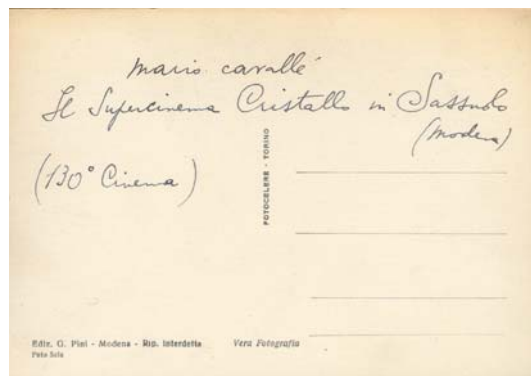 mario cavallé
Il Supercinema Cristallo in Sassuolo
(Modena)
(130° Cinema)
FOTOCELERE - TORINO
Ediz. G. Pini - Modena - Rip. interdetta
Vera Fotografia